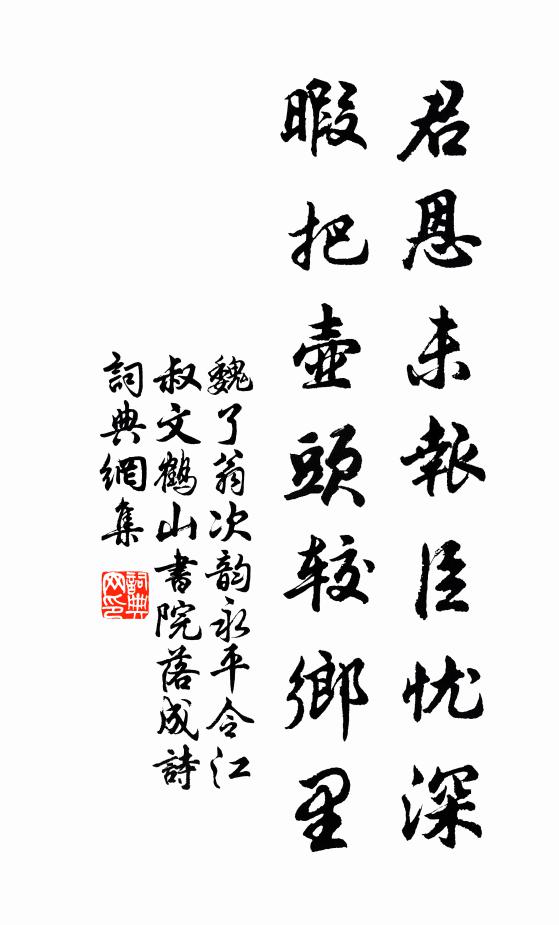 君恩未報臣忧深
暇把壺頭较鄉里
魏了翁次韵永平令江
叔文鶴山書院落成詩
詞典網集
詞典網印